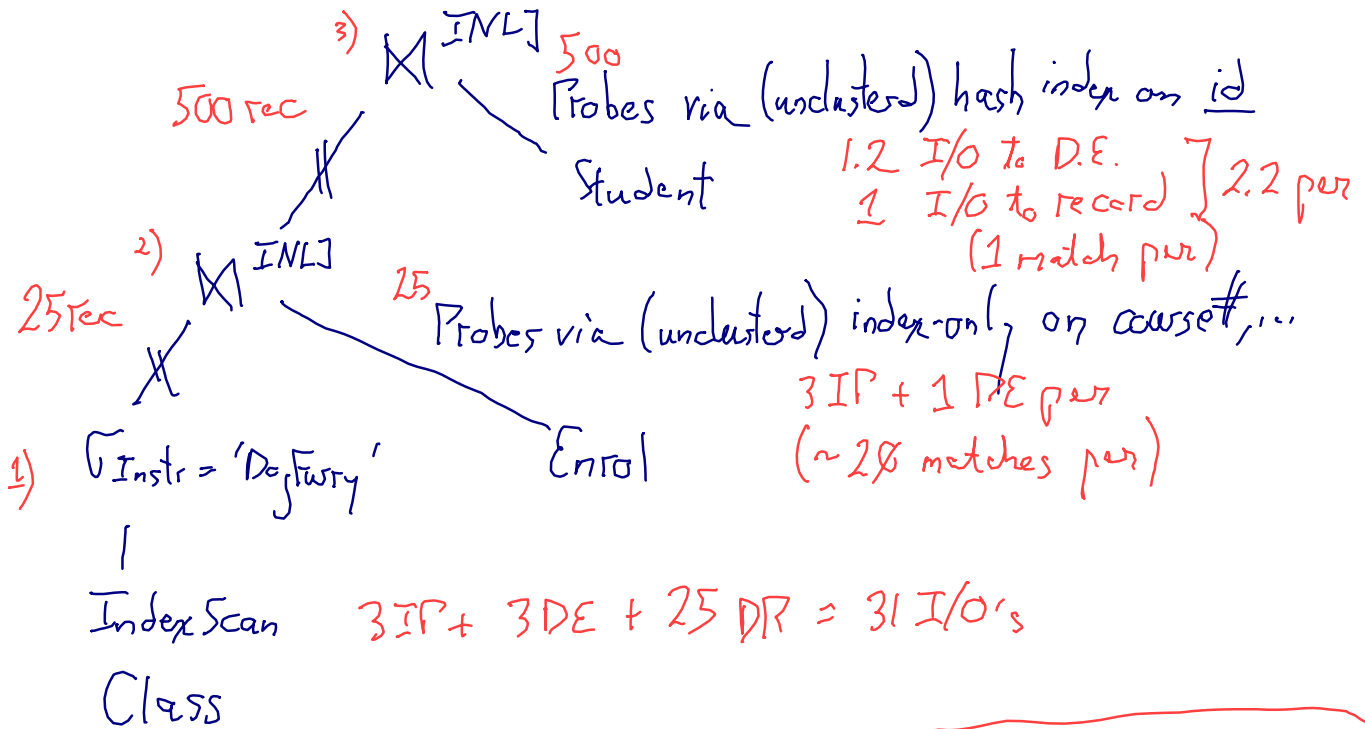 3) ⋈ INLJ 500
500 rec
Probes via (unclusterd) hash index on id
Student
1.2 I/O to D.E.
1 I/O to record ] 2.2 per
(1 match per)
2) ⋈ INLJ
25 rec
25
Probes via (unclusterd) index-only on course#,...
3 IP + 1 DE per
(~20 matches per)
Enrol
1) σ Instr = 'DogFurry'
Index Scan 3 IP + 3 DE + 25 DR = 31 I/O's
Class